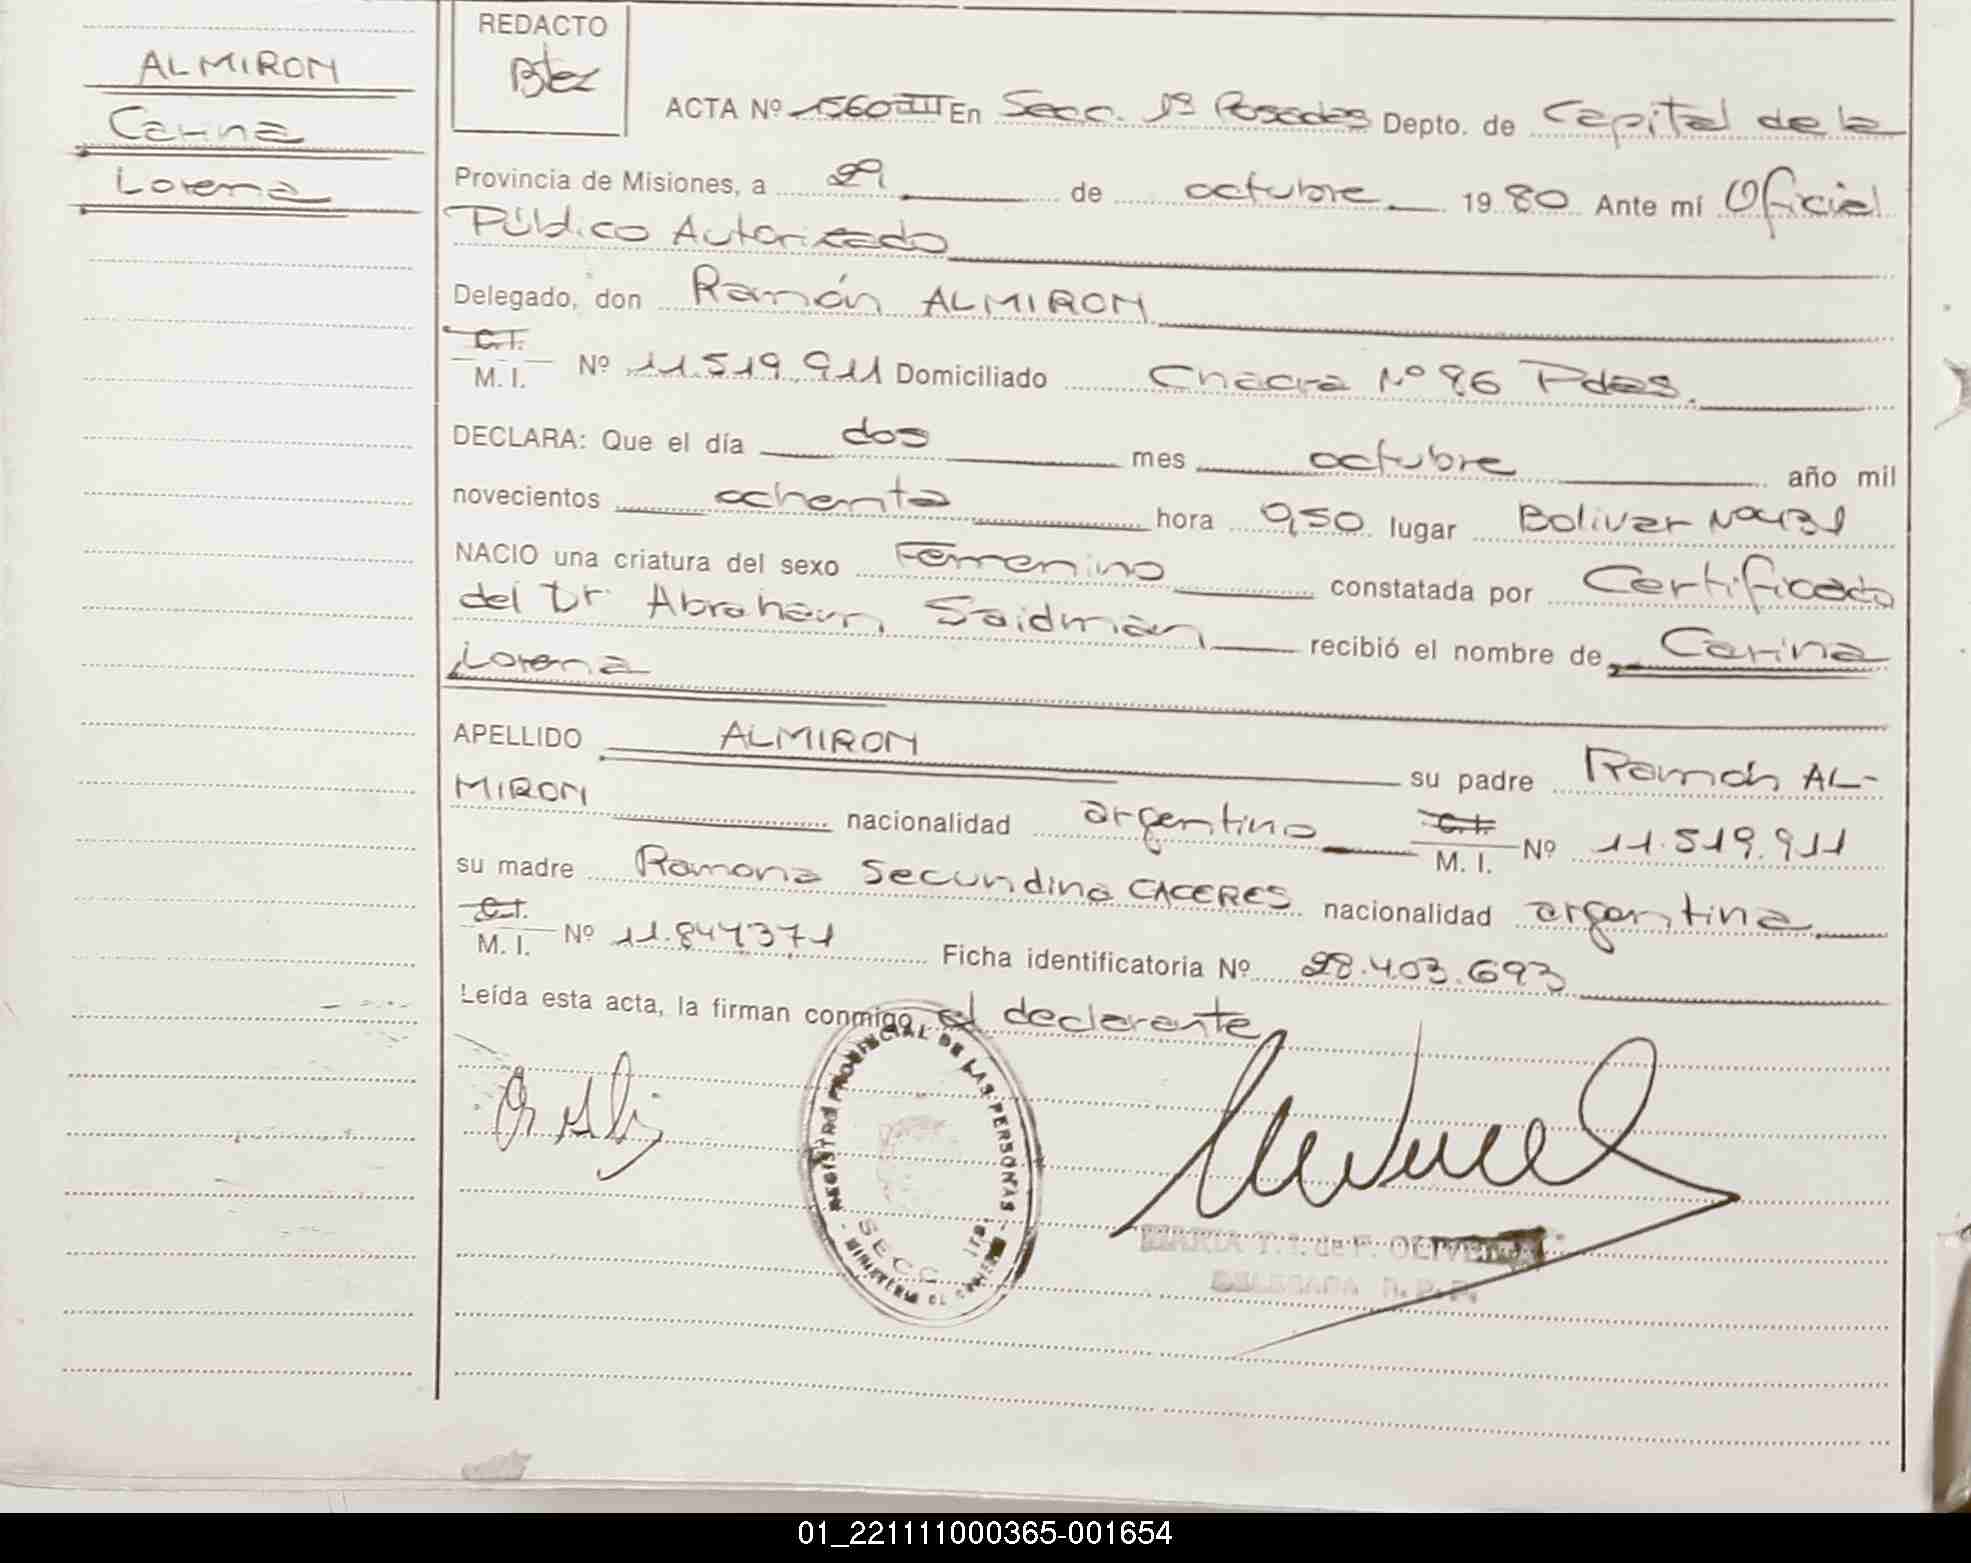 ALMIRON
Carina
Lorena
REDACTO
Btez
ACTA Nº 1560 III En Secc. 1ª Posadas Depto. de Capital de la
Provincia de Misiones, a 29 de octubre 1980 Ante mí Oficial
Público Autorizado
Delegado, don Ramón ALMIRON
C.I.
M. I. Nº 11.519.911 Domiciliado Chacra Nº 96 Pdas.
DECLARA: Que el día dos mes octubre año mil
novecientos ochenta hora 9,50 lugar Bolivar Nº431
NACIO una criatura del sexo Femenino constatada por Certificado
del Dr. Abraham Saidman recibió el nombre de Carina
Lorena
APELLIDO ALMIRON su padre Ramón AL-
MIRON nacionalidad argentino C.I. M. I. Nº 11.519.911
su madre Ramona Secundina CACERES nacionalidad argentina
C.I.
M. I. Nº 11.847371 Ficha identificatoria Nº 28.403.693
Leída esta acta, la firman conmigo el declarante
REGISTRO PROVINCIAL DE LAS PERSONAS
SECC
MARIA T. I. de F. OLIVEIRA
DELEGADA R. P. P.
01_221111000365-001654